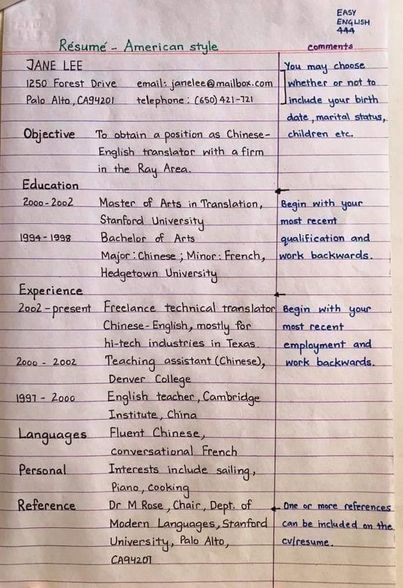 EASY
ENGLISH
444
Résumé - American style
comments
JANE LEE
1250 Forest Drive email: janelee@mailbox.com
Palo Alto, CA94201 telephone: (650) 421-721
You may choose
whether or not to
include your birth
date, marital status,
children etc.
Objective To obtain a position as Chinese-
English translator with a firm
in the Ray Area.
Education
2000-2002 Master of Arts in Translation,
Stanford University
1994-1998 Bachelor of Arts
Major: Chinese; Minor: French,
Hedgetown University
Begin with your
most recent
qualification and
work backwards.
Experience
2002-present Freelance technical translator
Chinese-English, mostly for
hi-tech industries in Texas.
2000 - 2002 Teaching assistant (Chinese),
Denver College
1997 - 2000 English teacher, Cambridge
Institute, China
Begin with your
most recent
employment and
work backwards.
Languages Fluent Chinese,
conversational French
Personal Interests include sailing,
Piano, cooking
Reference Dr M Rose, Chair, Dept. of
Modern Languages, Stanford
University, Palo Alto,
CA94201
One or more references
can be included on the
cv/resume.